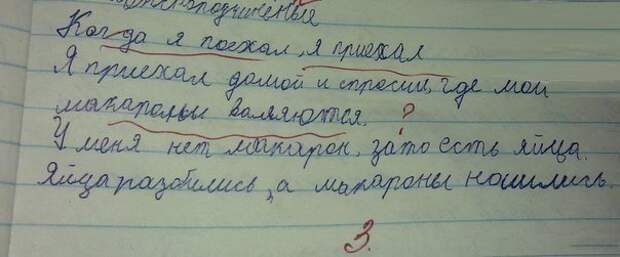 Когда я поехал, я приехал
Я приехал домой и спросил, где мои
макароны валяются. ?
У меня нет макарон, зато есть яйца.
Яйца разбились, а макароны
3.